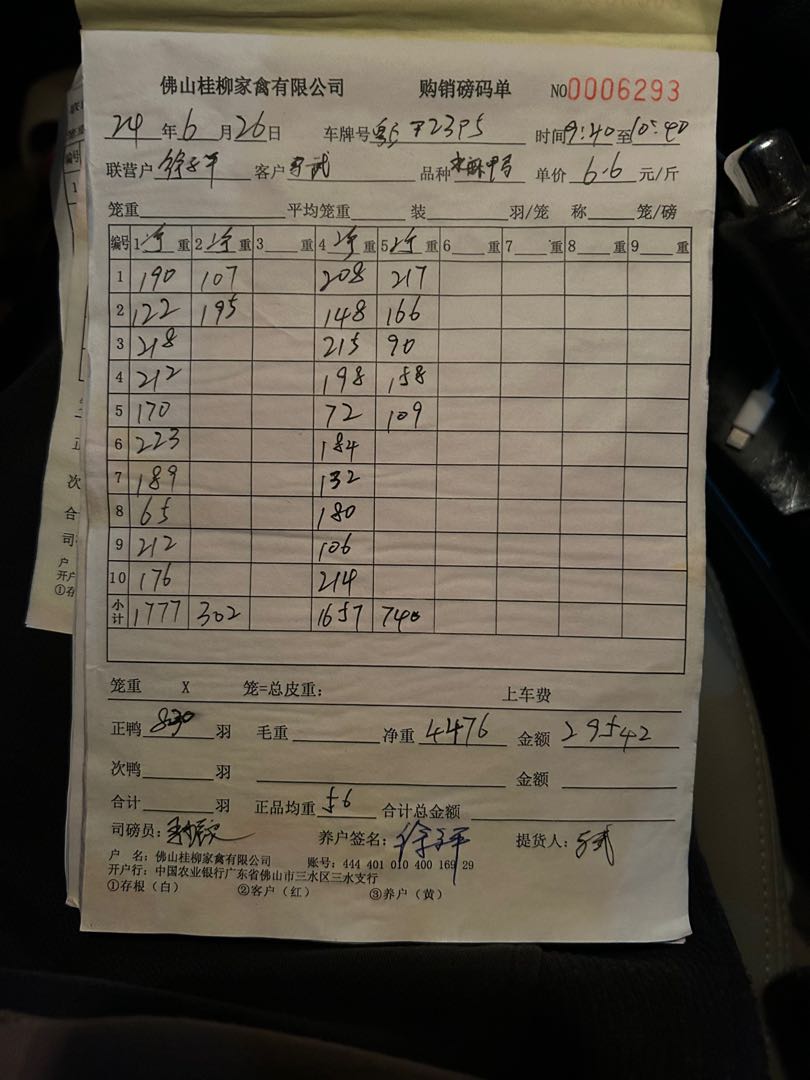 佛山桂柳家禽有限公司 购销磅码单 NO0006293
24年6月26日 车牌号 时间9:40至10:40
联营户徐子军 客户 武 品种 单价6.6元/斤
笼重 平均笼重 装 羽/笼 称 笼/磅
编号 1净重 2净重 3重 4净重 5净重 6重 7重 8重 9重
1 190 107 208 217
2 122 195 148 166
3 218 215 90
4 212 198 158
5 170 72 109
6 223 184
7 189 132
8 65 180
9 212 106
10 176 214
小计 1777 302 1657 740
笼重 X 笼=总皮重: 上车费
正鸭830羽 毛重 净重4476 金额29542
次鸭 羽 金额
合计 羽 正品均重56 合计总金额
司磅员: 养户签名:徐子军 提货人: 武
户 名:佛山桂柳家禽有限公司 账号:444 401 010 400 169 29
开户行:中国农业银行广东省佛山市三水区三水支行
①存根(白) ②客户(红) ③养户(黄)